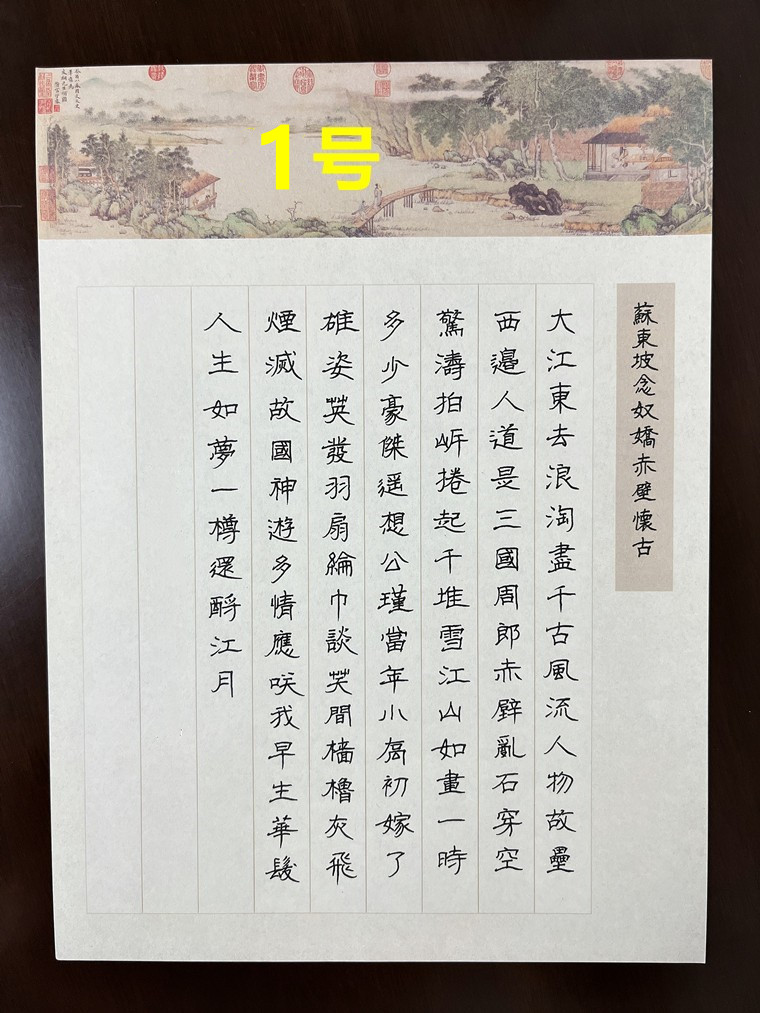 1号
蘇東坡念奴嬌赤壁懷古
大江東去浪淘盡千古風流人物故壘
西邉人道是三國周郎赤壁亂石穿空
驚濤拍岸捲起千堆雪江山如畫一時
多少豪傑遥想公瑾當年小喬初嫁了
雄姿英發羽扇綸巾談笑間檣櫓灰飛
煙滅故國神遊多情應咲我早生華髮
人生如夢一樽還酹江月